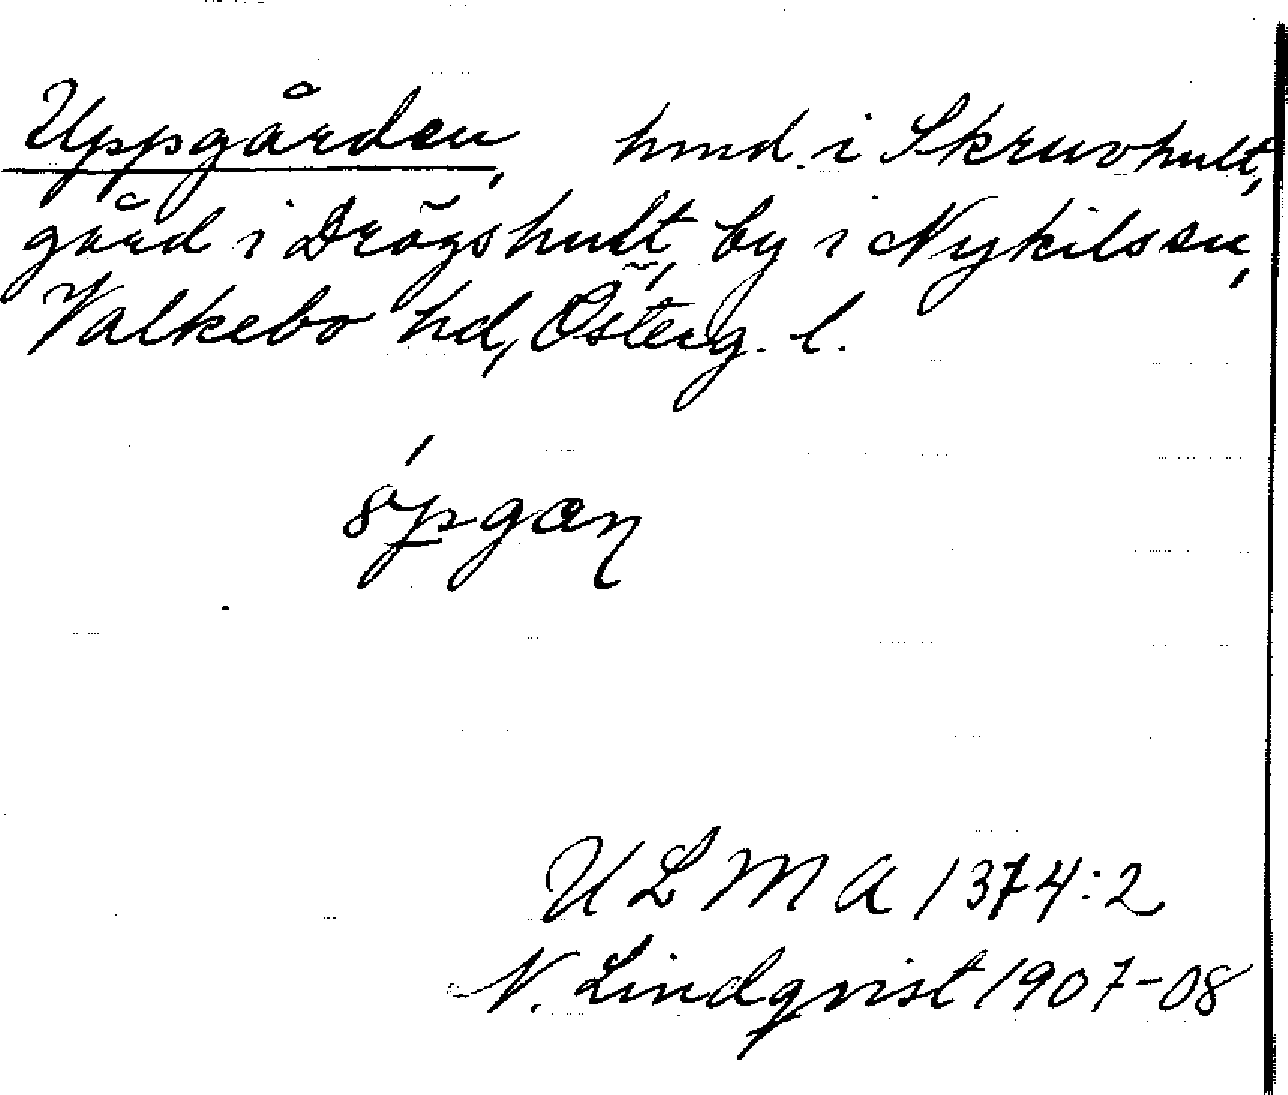 Uppgården, hmd. i Skruvhult,
gård i Drögshult, by i Nykils sn,
Valkebo hd, Österg. l.
ULMA 1374:2
N. Lindqvist 1907-08